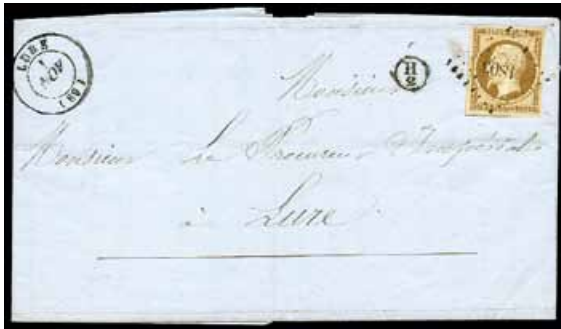 LURE
1
NOV
(69)
H
2
180
Monsieur
Monsieur Le Procureur Impérial
à Lure